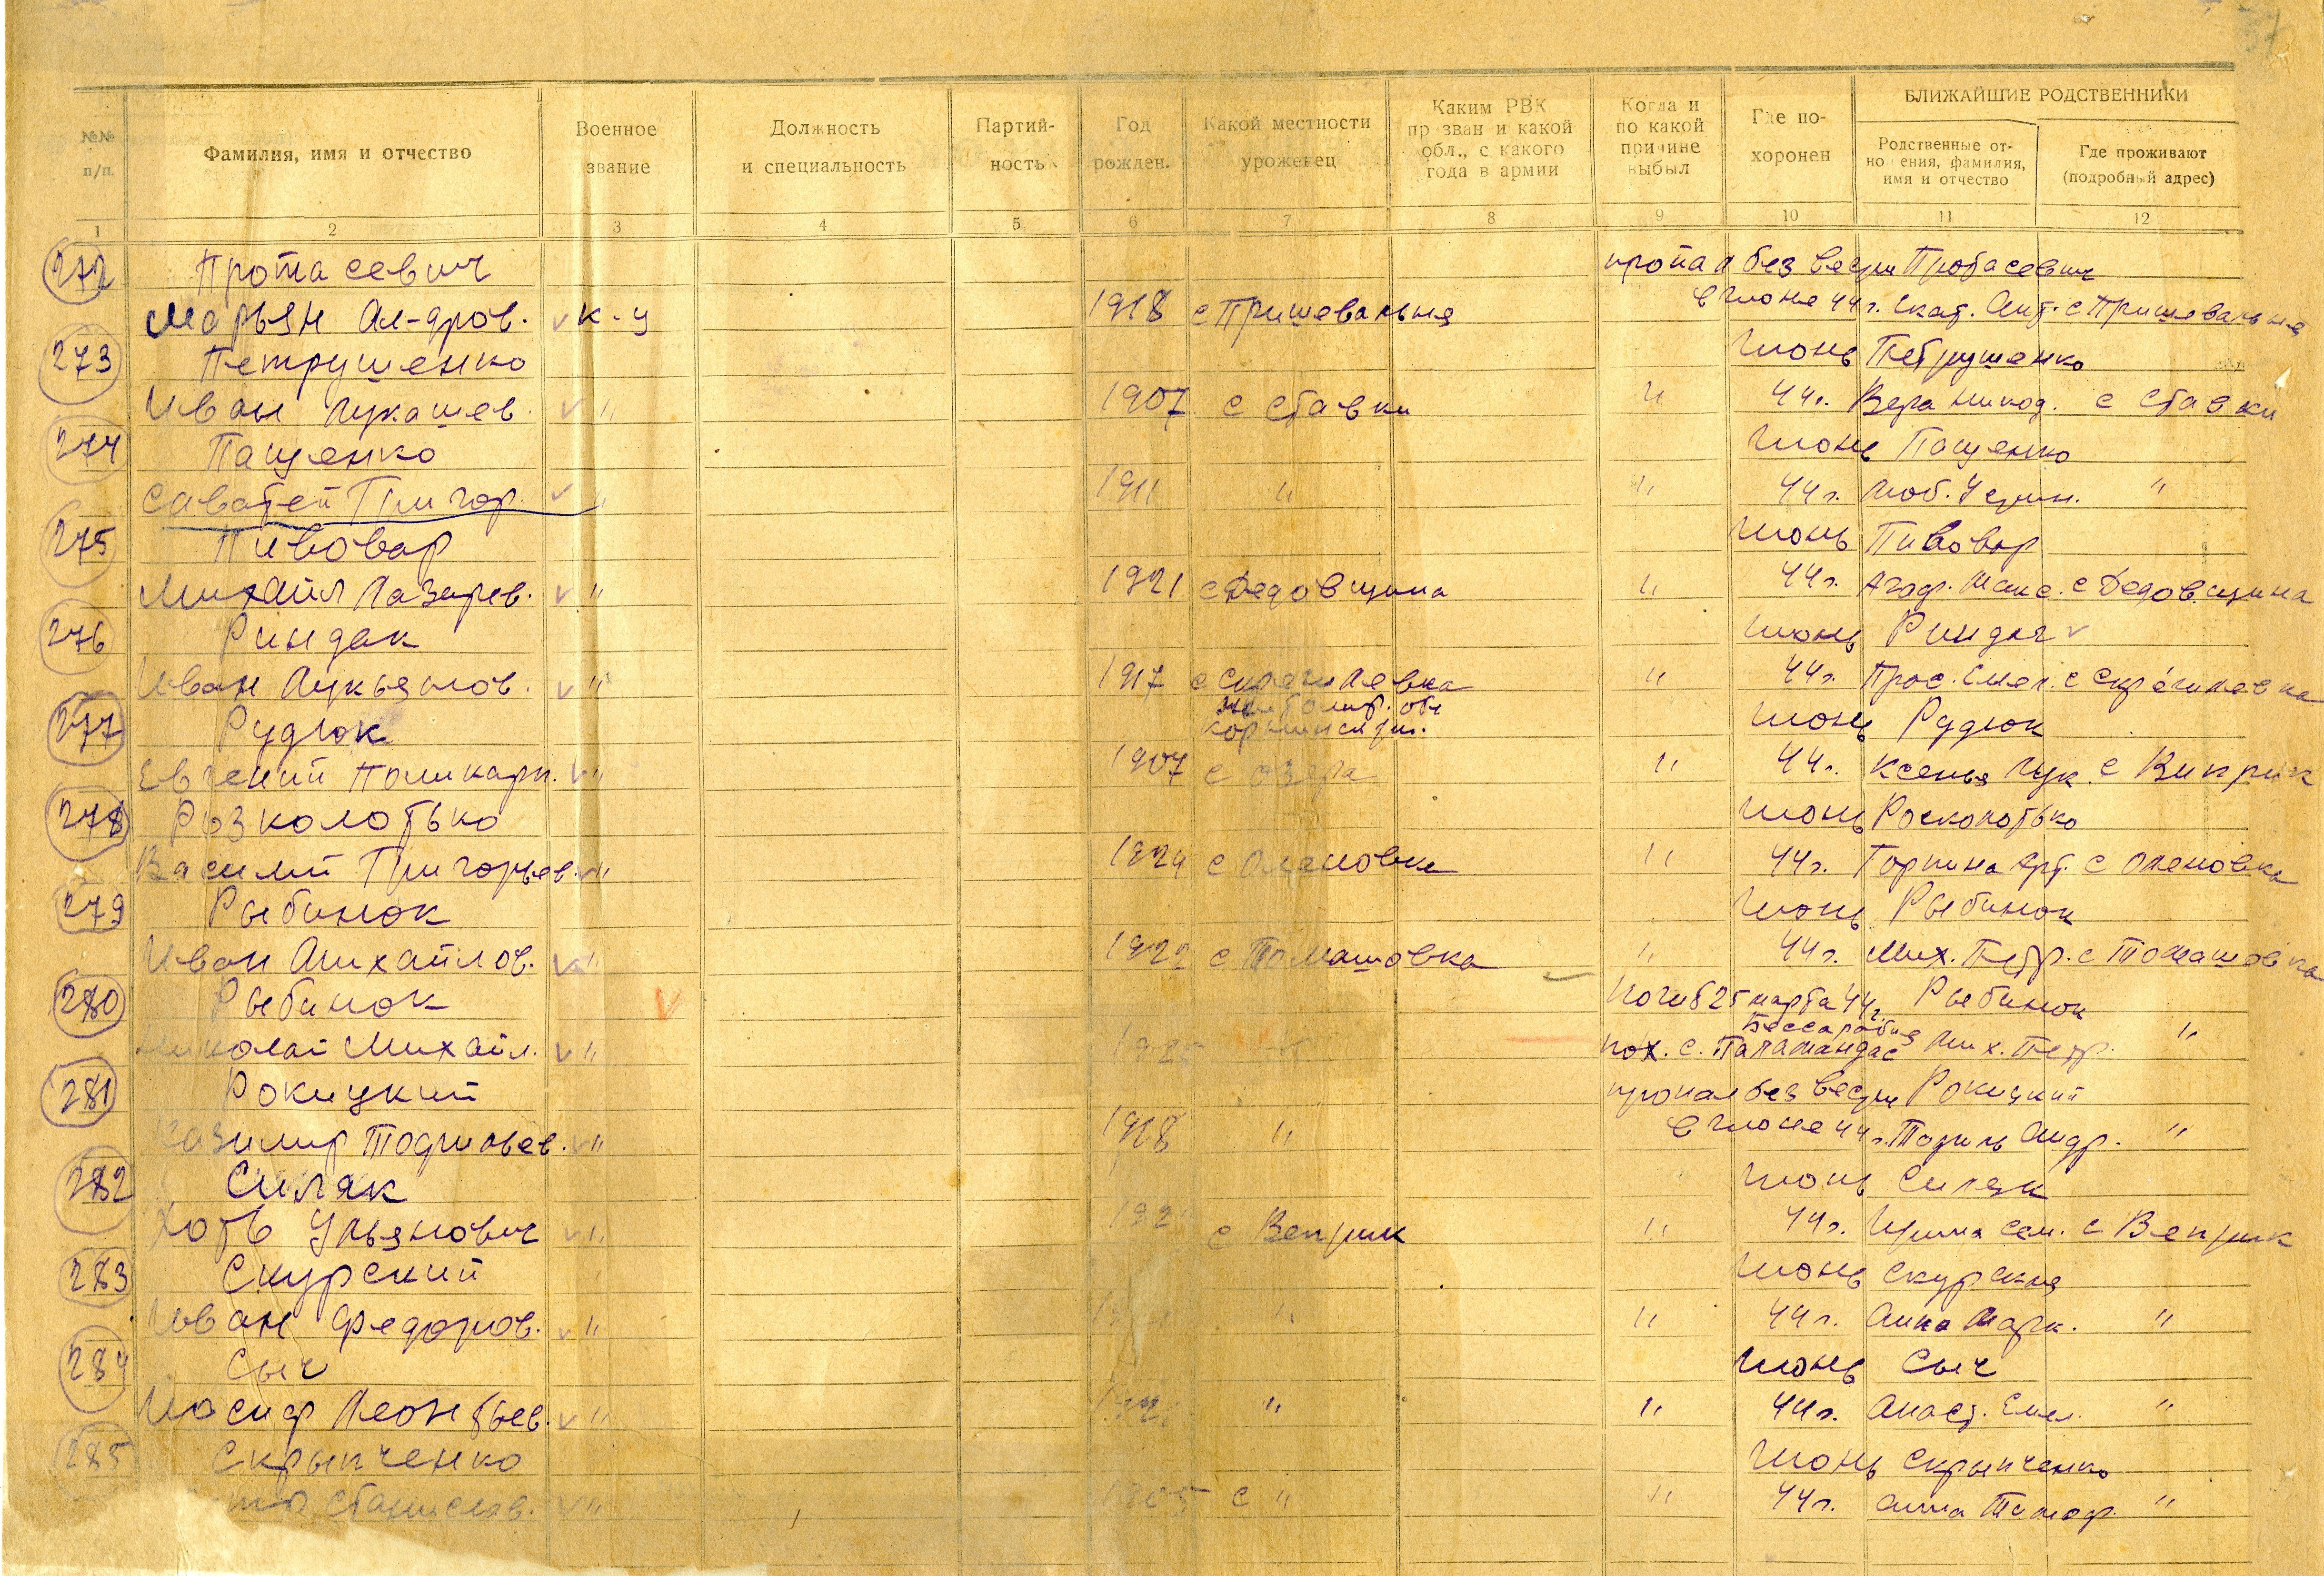 БЛИЖАЙШИЕ РОДСТВЕННИКИ
№№ п/п. Фамилия, имя и отчество Военное звание Должность и специальность Партийность Год рожден. Какой местности уроженец Каким РВК призван и какой обл., с какого года в армии Когда и по какой причине выбыл Где похоронен Родственные отношения, фамилия, имя и отчество Где проживают (подробный адрес)
1 2 3 4 5 6 7 8 9 10 11 12
272 Протасевич пропал без вести Протасевич
Марьян Ал-дров. к-ц 1918 с Пришевальня в июне 44 г. Екат. Ант. с Пришевальня
273 Петрушенко Июнь Петрушенко
Иван Лукашев. " 1907 с Ставки " 44 г. Вера Никод. с Ставки
274 Пащенко Июнь Пащенко
Саватей Григор. " 1911 " " 44 г. Люб. Устин. "
275 Пивовар Июнь Пивовар
Михайл Лазарев. " 1921 с Дедовщина " 44 г. Агаф. Макс. с Дедовщина
276 Риндак Июнь Риндак
Иван Лукьянов. " 1917 с Скрагилевка " 44 г. Прос. Емел. с Скрагилевка
277 Рудюк Житомир. обл Корнинск рн. Июнь Рудюк
Евгений Поликарп. " 1907 с Озера " 44 г. Ксенья Лук. с Виприк
278 Розколотько Июнь Росколотько
Василий Григорьев. " 1924 с Оленовка " 44 г. Горпина Арт. с Оленовка
279 Рыбинок Июнь Рыбинок
Иван Михайлов. " 1922 с Томашовка " 44 г. Мих. Петр. с Томашовка
280 Рыбинок Погиб 25 марта 44 г. Рыбинок
Николай Михайл. " 1925 Бессарабия пох. с. Паламандас Мих. Петр. "
281 Рокицкий пропал без вести Рокицкий
Казимир Тофильев. " 1918 " в июне 44 г. Тофиль Андр. "
282 Силяк Июнь Силяк
Хоть Ульянович " с Веприк " 44 г. Ирина Сем. с Веприк
283 Скурский Июнь Скурская
Иван Федоров. " " " 44 г. Анна Марк. "
284 Сыч Июнь Сыч
Иосиф Леонтьев. " " " 44 г. Анаст. Емел. "
285 Скрыпченко Июнь Скрыпченко
Станислав. " 1905 с " " 44 г. Анна Тимоф. "